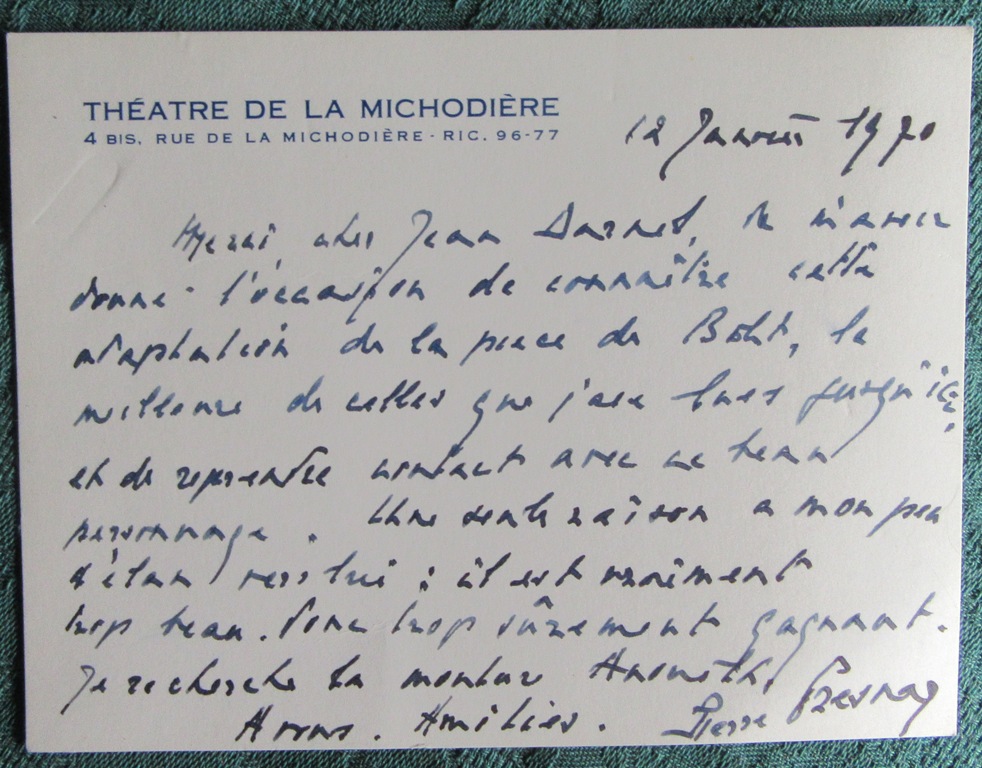 THÉATRE DE LA MICHODIÈRE
4 BIS, RUE DE LA MICHODIÈRE - RIC. 96-77
12 Janvier 1970
Merci, cher Jean Darnel, de m'avoir
donné l'occasion de connaître cette
adaptation de la pièce de Bolt, la
meilleure de celles que j'aie lues jusqu'ici
et de reprendre contact avec ce beau
personnage. Une seule raison a mon peu
d'élan vers lui : il est vraiment
trop beau. Donc trop sûrement gagnant.
Je recherche la
Amitiés. Pierre Fresnay